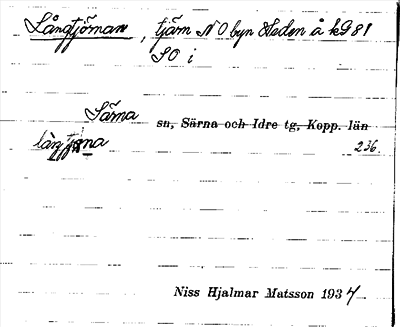 Långtjörnan, tjärn N O byn Heden å kG 81
S O i
Särna sn, Särna och Idre tg, Kopp. län
långtjøna 236.
Niss Hjalmar Matsson 1934